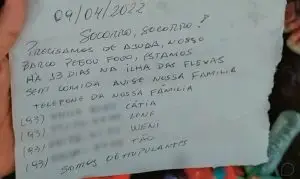 09/04/2022
SOCORRO, SOCORRO!
PRECISAMOS DE AJUDA, NOSSO
BARCO PEGOU FOGO, ESTAMOS
HÁ 13 DIAS NA ILHA DAS FLEXAS
SEM COMIDA AVISE NOSSA FAMILIA
TELEFONE DA NOSSA FAMÍLIA
(93) CÁTIA
(93)
(93) WENI
(93) TÃO
SOMOS 06 TRIPULANTES